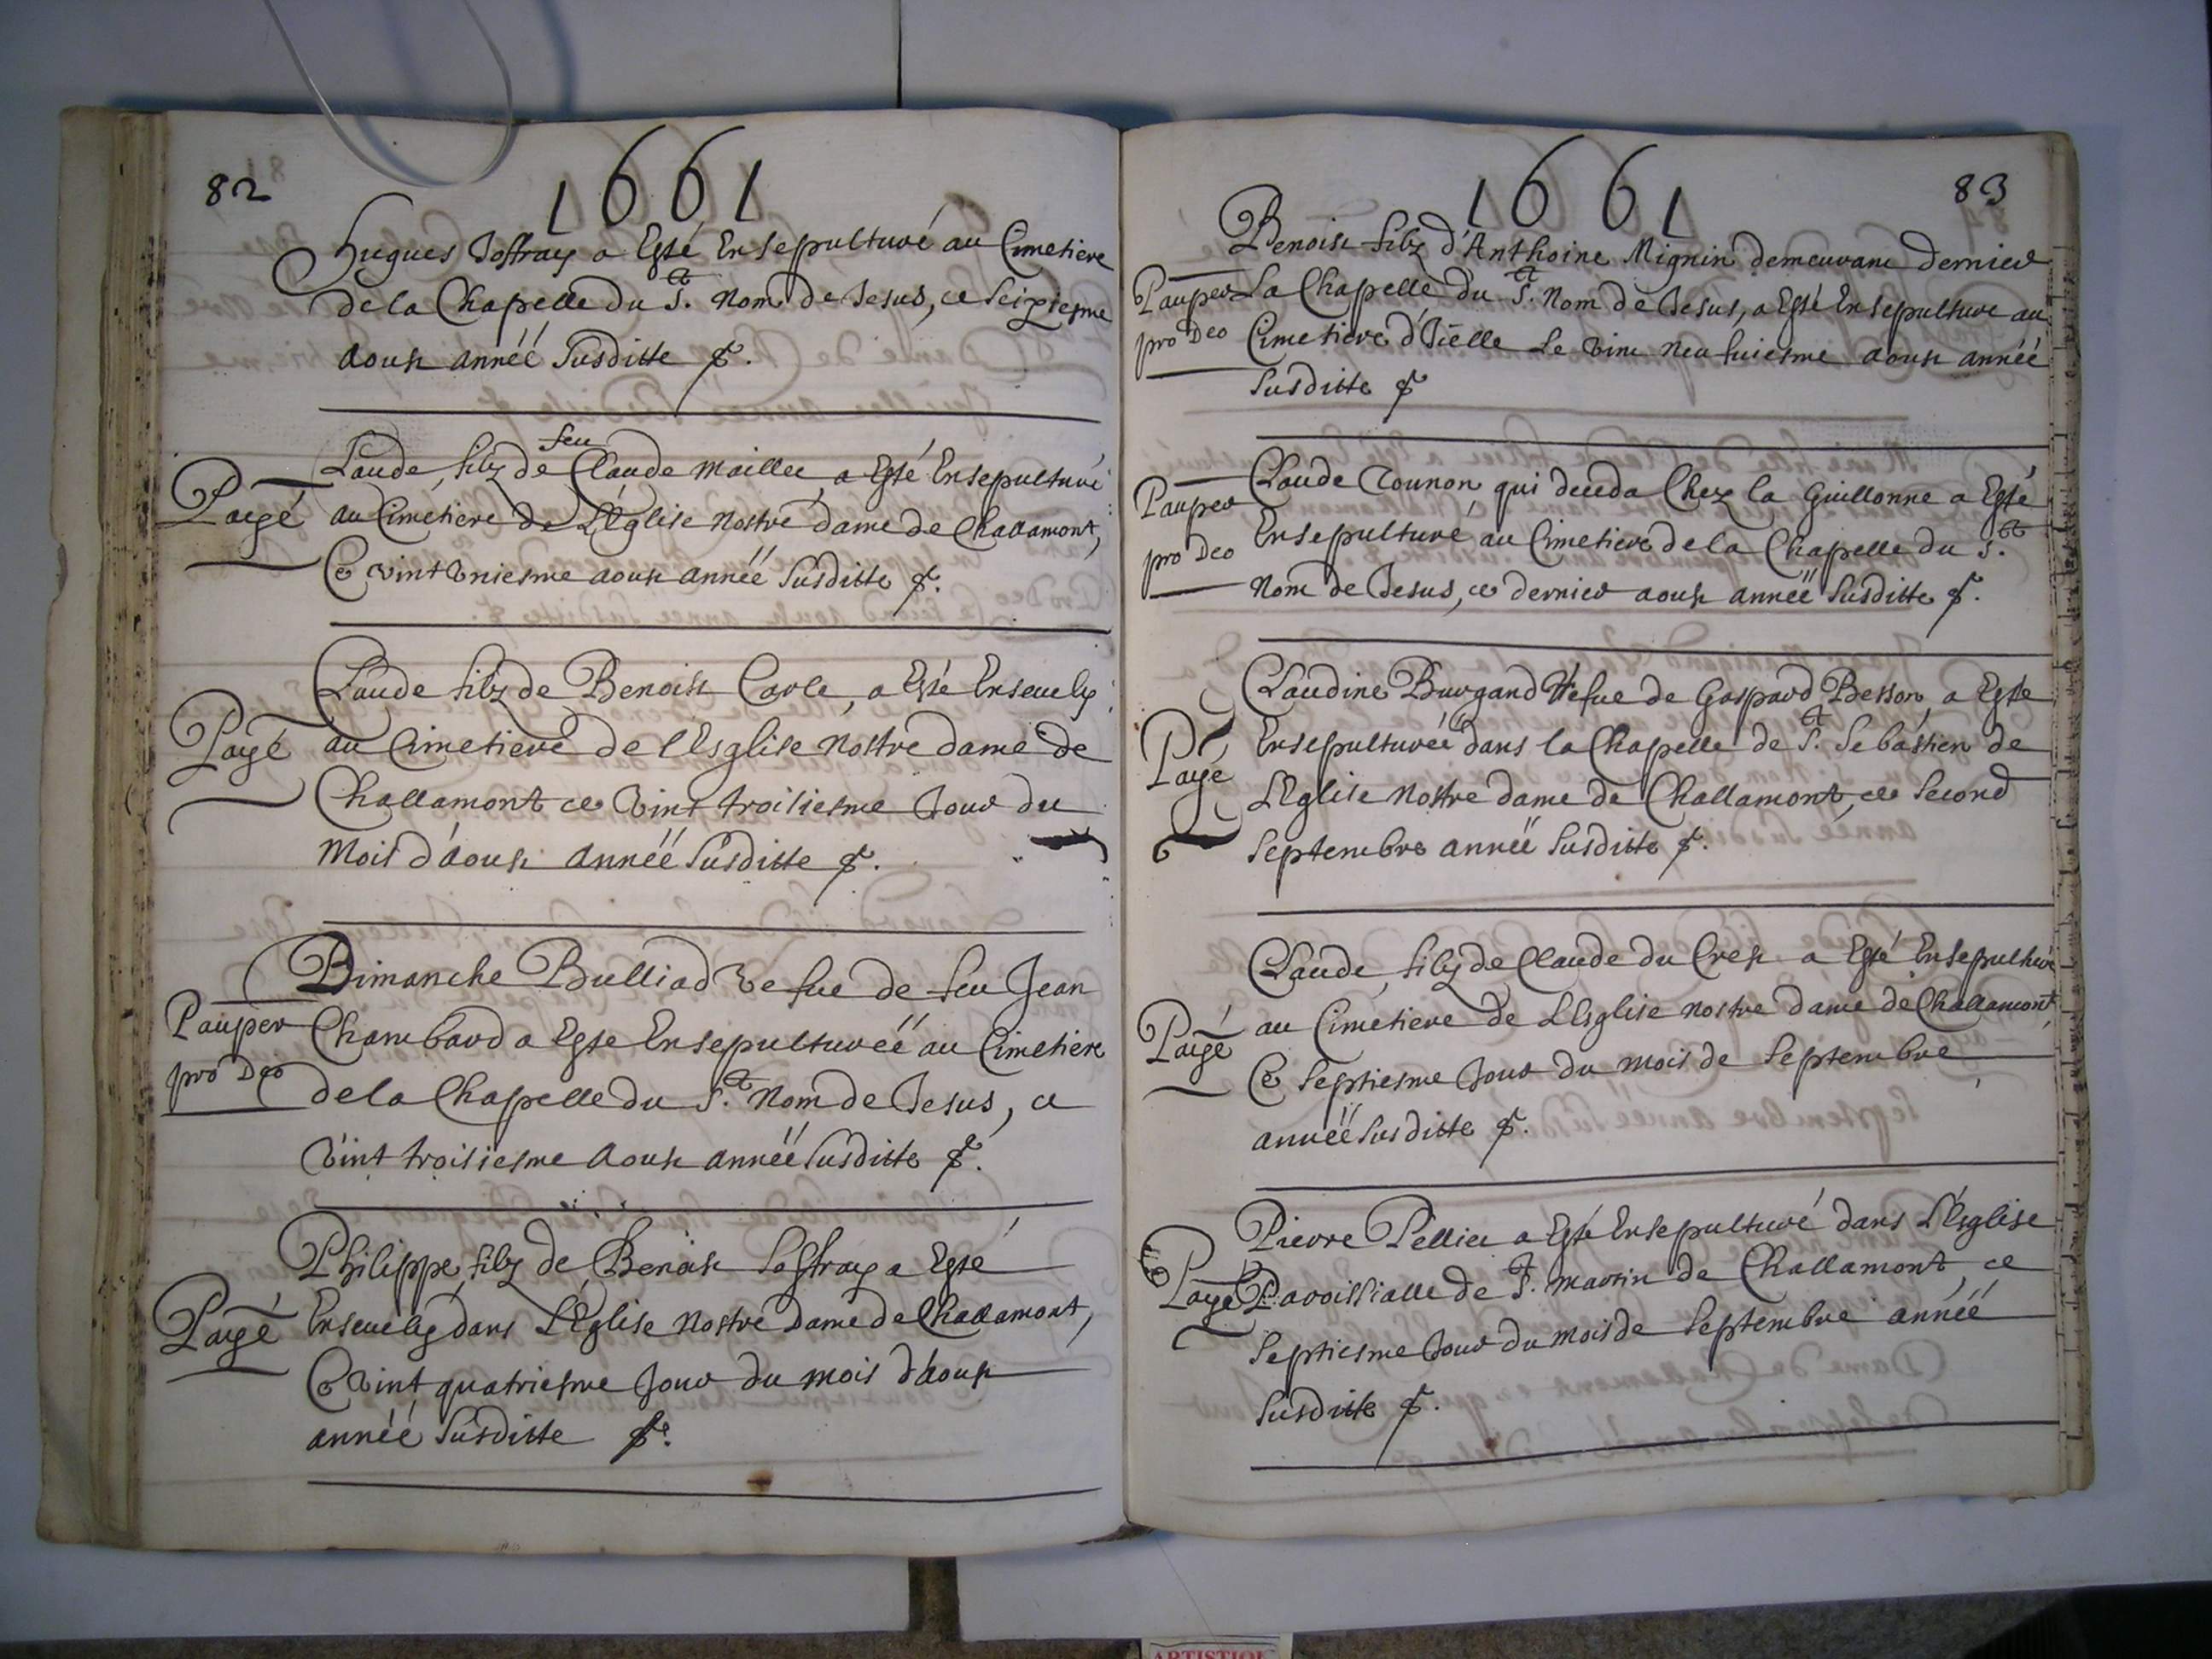 82
1661
Hugues Joffray a Esté Ensepulturé au Cimetiere
de la Chapelle du St. Nom de Jesus, ce seiziesme
aoust année susditte
Payé
Claude, filz de feu Claude Maillet, a Esté Ensepulturé
au Cimetiere de L'Eglise Nostre dame de Challamont,
Ce vint vniesme aoust année susditte
Payé
Claude filz de Benoist Carle, a Esté Enseuely
au Cimetiere de l'Esglise Nostre dame de
Challamont ce vint troisiesme Jour du
Mois d'aoust année susditte
Pauper
pro Deo
Dimanche Bulliad vefue de feu Jean
Chambard a Esté Ensepulturéé au Cimetiere
de la Chapelle du St. Nom de Jesus, ce
vint troisiesme aoust année susditte
Payé
Philippe, filz de Benoist Joffray a Esté
Enseuely dans L'Eglise Nostre Dame de Challamont,
Ce vint quatriesme Jour du mois d'Aoust
année susditte
83
1661
Pauper
pro Deo
Benoist filz d'Anthoine Mignin demeurant dernier
La Chapelle du St. Nom de Jesus, a Esté Ensepulture au
Cimetiere d'Icelle Le vint neufuiesme aoust année
susditte
Pauper
pro Deo
Claude Tounon qui deceda Chez la Guillonne a Esté
Ensepulturé au Cimetiere de la Chapelle du St.
Nom de Jesus, ce dernier aoust année susditte
Payé
Claudine Burgand Vefue de Gaspard Besson, a Esté
Ensepulturéé dans la Chapelle de St. Sebastien de
L'Eglise Nostre dame de Challamont, ce second
septembre année susditte
Payé
Claude, filz de Claude du Crest a Esté Ensepulturé
au Cimetiere de L'Esglise Nostre dame de Challamont,
Ce septiesme Jour du mois de septembre
année susditte
Payé
Pierre Pellier a Esté Ensepulturé dans L'Esglise
Paroissialle de St. Martin de Challamont, ce
septiesme Jour du mois de septembre année
susditte